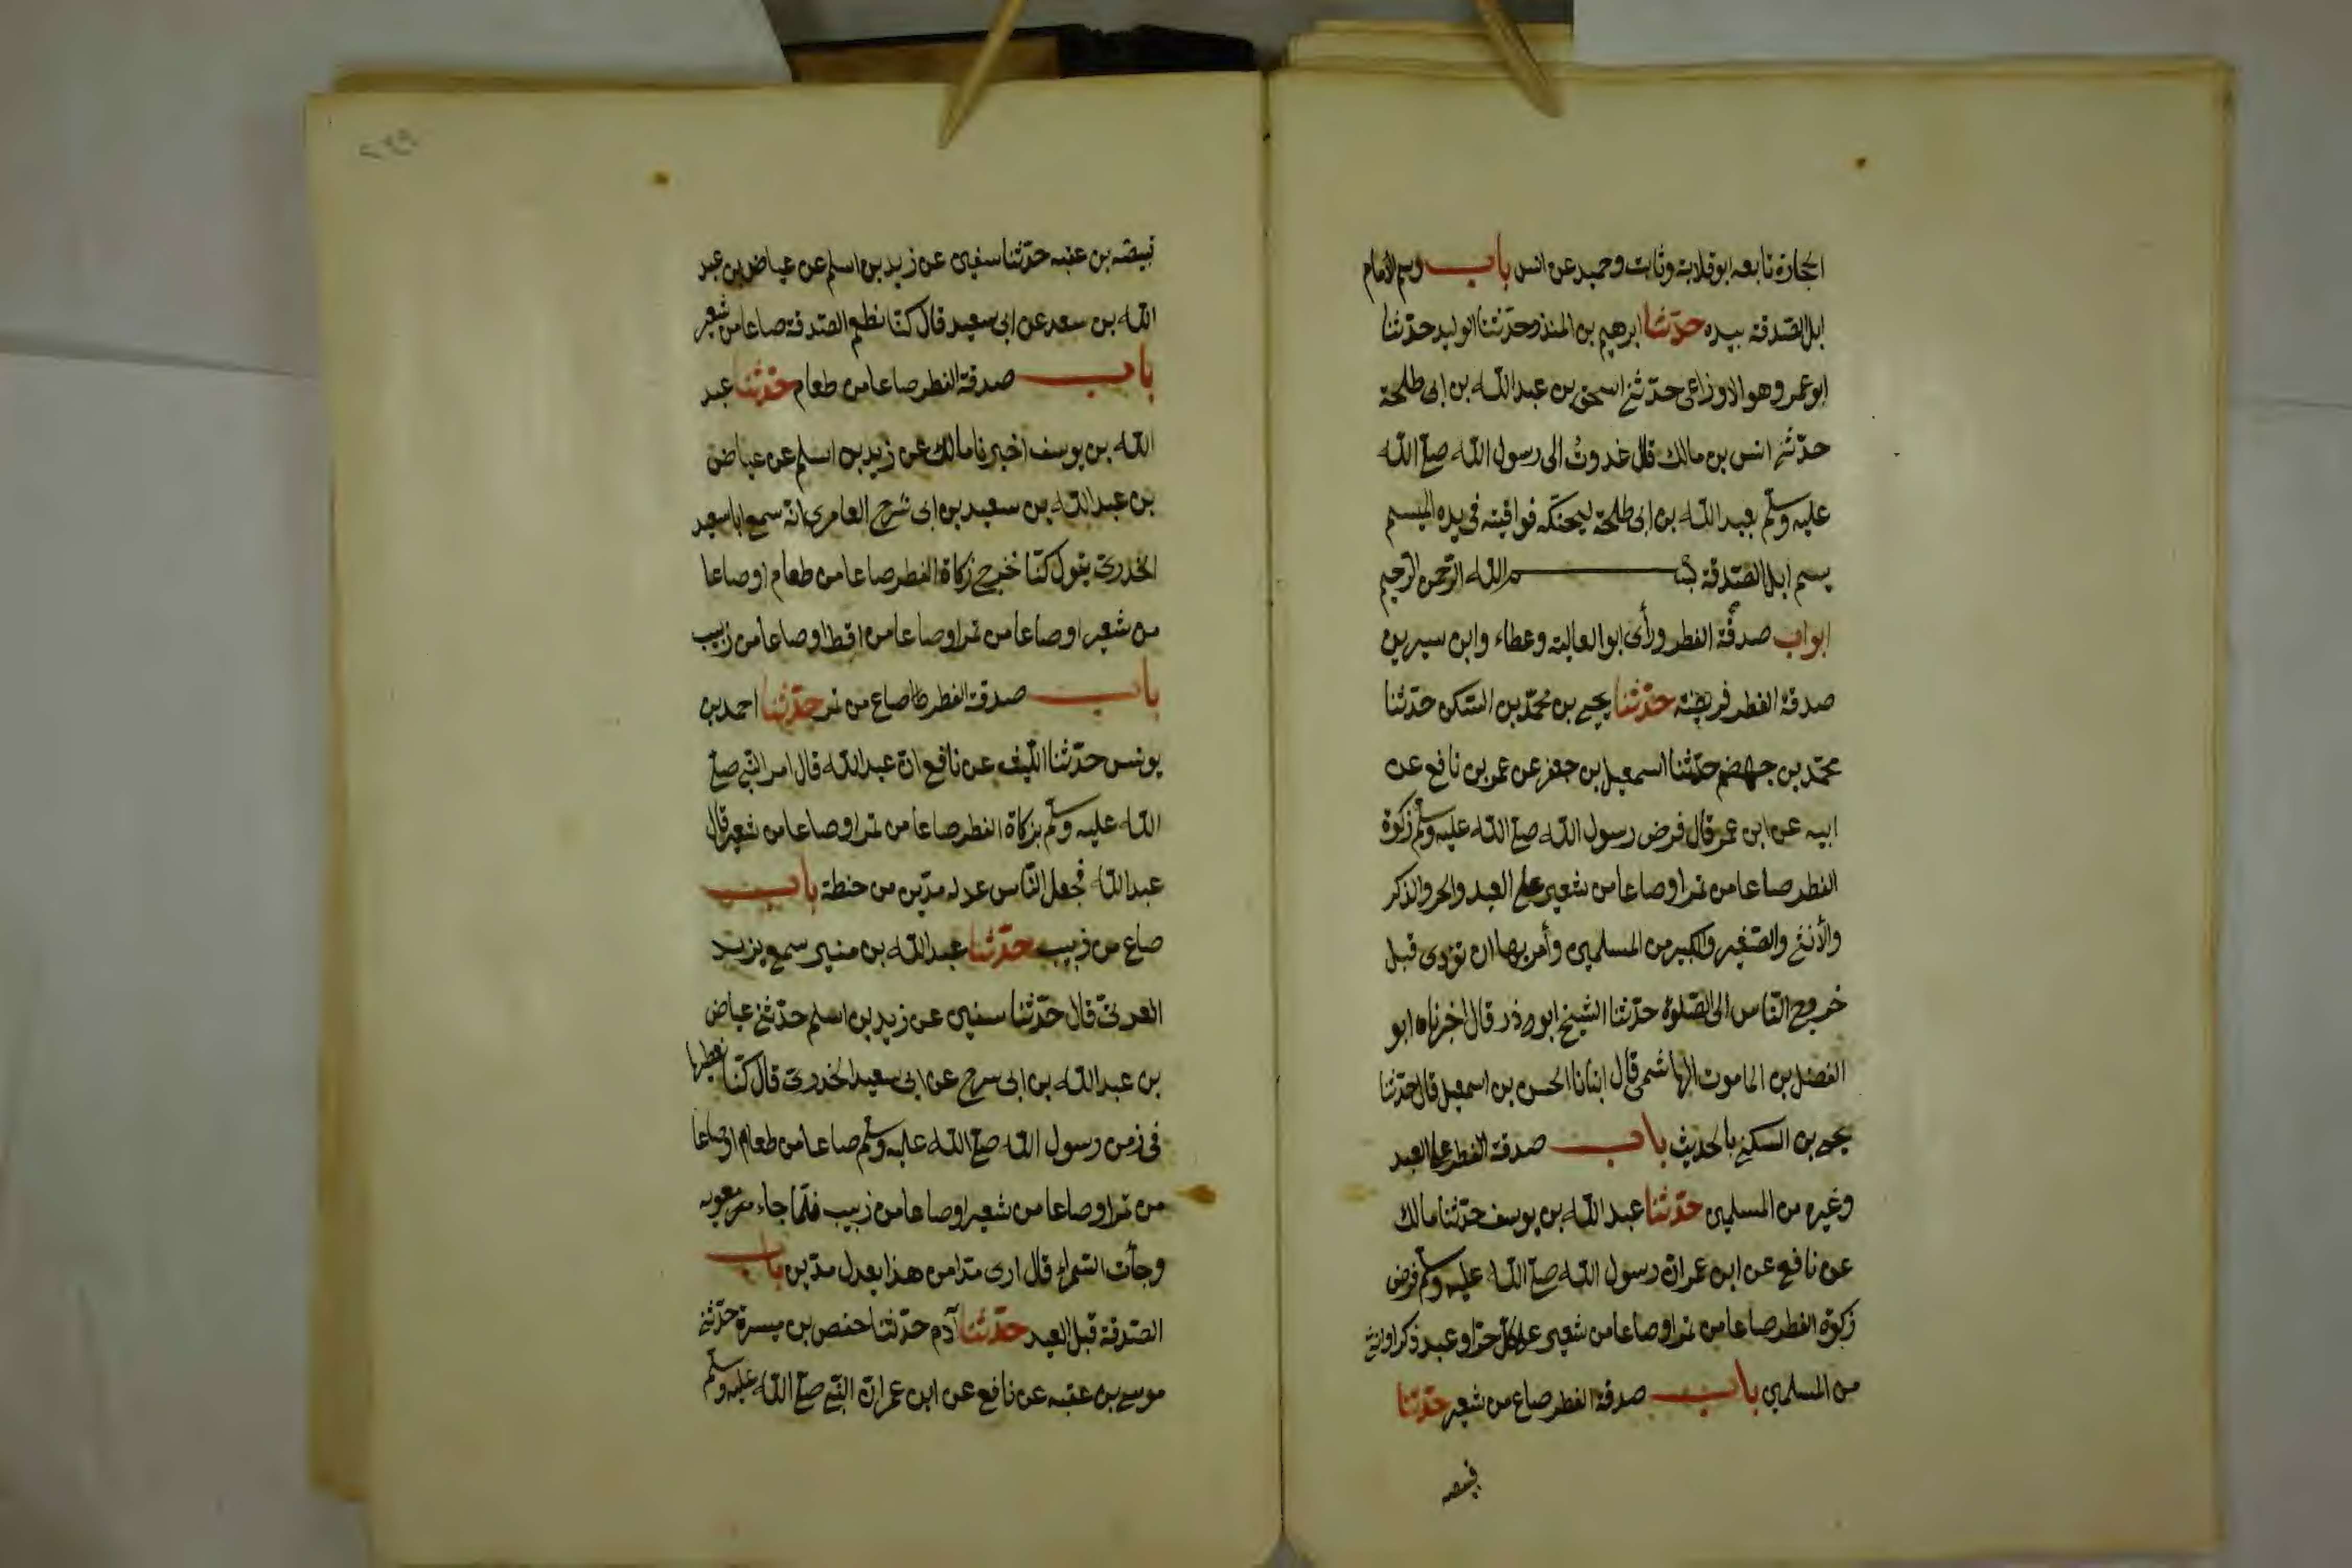 الحجارة تابعه ابو قلابة وثابت وحميد عن انس باب وسم الامام
ابل الصّدقة بيده حدّثنا ابرهيم بن المنذر حدّثنا الوليد حدّثنا
ابو عمرو هو الاوزاعى حدّثنى اسحق بن عبد اللّه بن ابى طلحة
حدّثنى انس بن مالك قال غدوتُ الى رسول اللّه صلى اللّه
عليه وسلّم بعبد اللّه بن ابى طلحة ليحنكه فوافيته فى يده الميسم
يسم ابل الصّدقة بسم اللّه الرّحمن الرّحيم
ابواب صدقة الفطر ورأى ابو العالية وعطاء وابن سيرين
صدقة الفطر فريضة حدّثنا يحيى بن محمّد بن السّكن حدّثنا
محمّد بن جهضم حدّثنا اسمعيل بن جعفر عن عمر بن نافع عن
ابيه عن ابن عمر قال فرض رسول اللّه صلى اللّه عليه وسلّم زكوة
الفطر صاعا من تمر او صاعا من شعير على العبد والحر والذكر
والأنثى والصّغير والكبير من المسلمين وأمر بها ان تؤدى قبل
خروج النّاس الى الصّلوة حدّثنا الشيخ ابو ذر قال اخبرناه ابو
الفضل بن المامون الهاشمى قال انبانا الحسن بن اسمعيل قال حدّثنا
يحيى بن السكن بالحديث باب صدقة الفطر على العبد
وغيره من المسلمين حدّثنا عبد اللّه بن يوسف حدّثنا مالك
عن نافع عن ابن عمر انّ رسول اللّه صلى اللّه عليه وسلّم فرض
زكوة الفطر صاعا من تمر او صاعا من شعير على كلّ حرّ او عبد ذكر او انثى
من المسلمين باب صدقة الفطر صاع من شعير حدّثنا
قبيصه
قبيصه بن عقبه حدّثنا سفين عن زيد بن اسلم عن عياض بن عبد
اللّه بن سعد عن ابى سعيد قال كنّا نطعم الصّدقة صاعا من شعير
باب صدقة الفطر صاعا من طعام حدّثنا عبد
اللّه بن يوسف اخبرنا مالك عن زيد بن اسلم عن عياض
بن عبد اللّه بن سعيد بن ابى سرح العامرى انّه سمع ابا سعيد
الخدرىّ يقول كنّا نخرج زكاة الفطر صاعا من طعام او صاعا
من شعير او صاعا من تمر او صاعا من اقط او صاعا من زبيب
باب صدقة الفطر صاع من تمر حدّثنا احمد بن
يونس حدّثنا اللّيث عن نافع انّ عبد اللّه قال امر النّبى صلى
اللّه عليه وسلّم بزكاة الفطر صاعا من تمر او صاعا من شعير قال
عبد اللّه فجعل النّاس عدله مدّين من حنطة باب
صاع من زبيب حدّثنا عبد اللّه بن منير سمع يزيد
العدنىّ قال حدّثنا سفين عن زيد بن اسلم حدّثنى عياض
بن عبد اللّه بن ابى سرح عن ابى سعيد الخدرىّ قال كنّا نعطيها
فى زمن رسول اللّه صلى اللّه عليه وسلّم صاعا من طعام او صاعا
من تمر او صاعا من شعير او صاعا من زبيب فلمّا جاء معويه
وجأت السّمراء قال ارى مدّا من هذا يعدل مدّين باب
الصّدقة قبل العيد حدّثنا آدم حدّثنا حفص بن ميسرة حدّثنى
موسى بن عقبه عن نافع عن ابن عمر انّ النّبى صلى اللّه عليه وسلّم